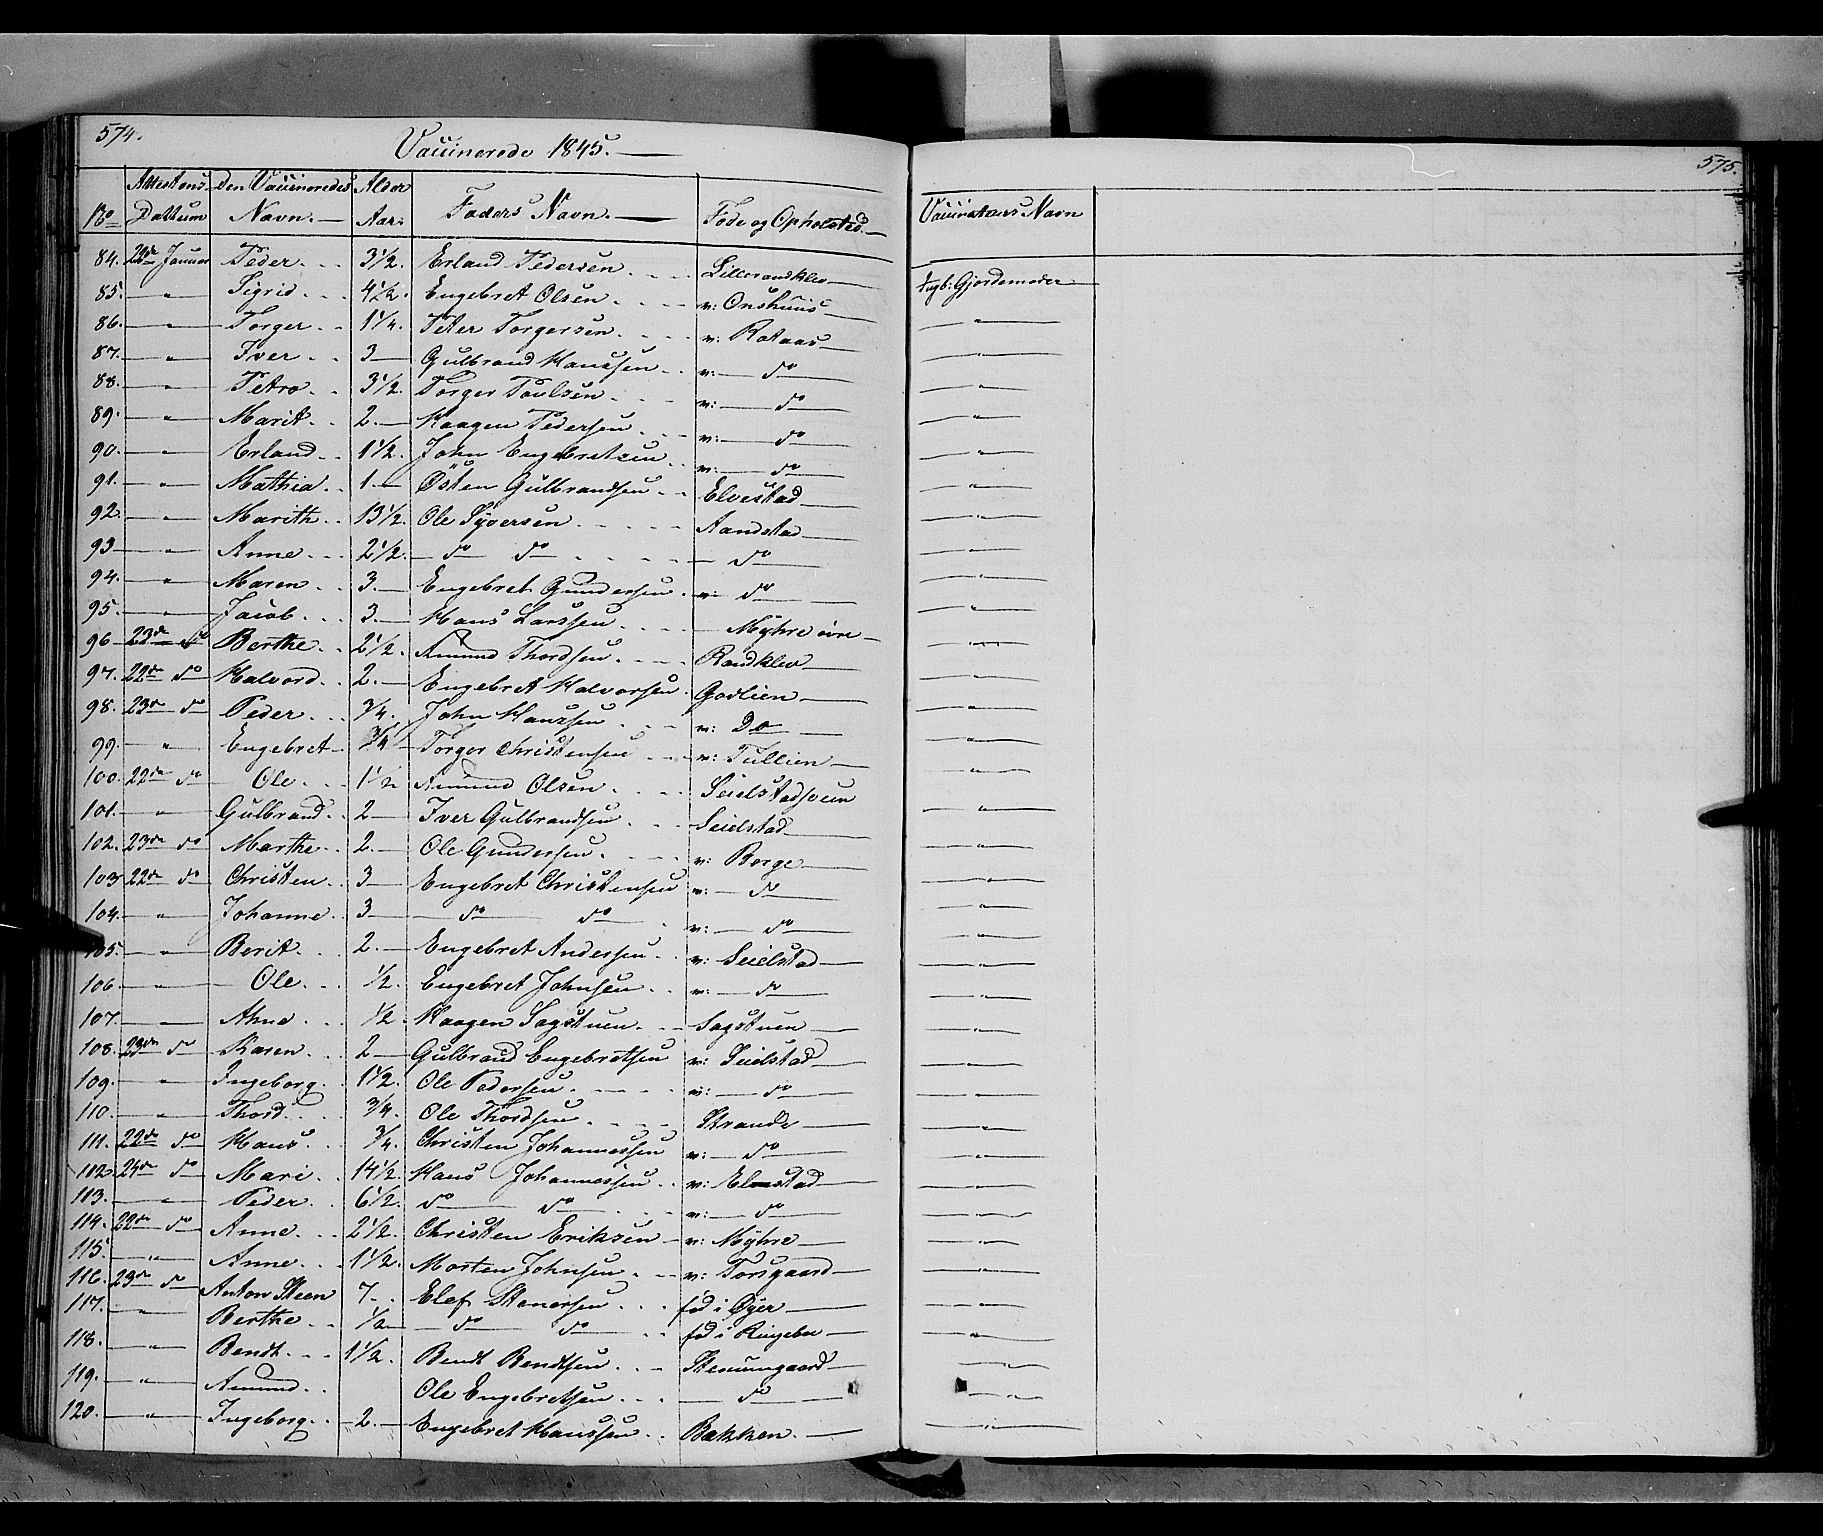 574.
Vaccinerede 1845.
No | Attestens Dattum | Den Vaccineredes Navn. | Alder Aar. | Faders Navn. | Føde og Opholsted.
84. 22de Januar Peder 3 1/2. Erland Pedersen Lillerandklev
85. " Sigrid 4 1/2. Engebret Olsen v: Onshuus
86. " Torger 1 1/4. Peter Torgersen v: Rotaas
87. " Iver 3 Gulbrand Hanssen v: do
88. " Petro 3 1/2. Torger Poulsen v: do
89. " Marit 2. Haagen Pedersen v: do
90. " Erland 1 1/2. John Engebretsen v: do
91. " Mathia 1. Østen Gulbrandsen Elvestad
92. " Marith 13 1/2. Ole Syversen Aandstad
93 " Anne 2 1/2. do do do
94. " Maren 3. Engebret Gundersen v: do
95. " Jacob 3. Hans Larssen Myhre øvre
96 23de do Berthe 2 1/2. Amund Thordsen Randklev
97. 22de do Halvord 2. Engebret Halvorsen Godlien
98. 23de do Peder 3/4. John Hanssen v: Do
99. " Engebret 3/4 Torger Christensen v: Tullien
100. 22de do Ole 1 1/2 Amund Olsen Seielstadsveen
101. " Gulbrand 2 Iver Gulbrandsen Seielstad
102. 23de do Marthe 2. Ole Gundersen v: Borge
103 22de do Christen 3 Engebret Christensen v: do
104. " Johanne 3 do do v: do
105. " Berit 2. Engebret Andersen v: Seielstad
106 " Ole 1/2. Engebret Johnsen v: do
107. " Ahne 1/2. Haagen Sagstuen Sagstuen
108. 23de do Karen 2 Gulbrand Engebretsen v: Seielstad
109. " Ingeborg 1 1/2. Ole Pedersen v: do
110. " Thord 3/4. Ole Thordsen Strande
111. 22de do Hans 3/4. Christen Johannessen v: do
112 24de do Mari 14 1/2. Hans Johannessen v: Elvestad
113. " Peder 6 1/2. do do v: do
114. 22de do Anne 2 1/2. Christen Eriksen v: Myhre
115. " Anne 1 1/2. Morten Johnsen v: Forsgaard
116. 23de do Anton Steen 7 Elef Stenersen fød i Øyer
117. " Berthe 1/2 do do fød i Ringebo
118. " Bendt 1 1/2. Bendt Bendtsen Stenumgaard
119. " Amund Ole Engebretsen do
120. " Ingeborg 2. Engebret Hanssen Bækken.
575.
Vaccinateurs Navn
Ingb: Gjordemoder